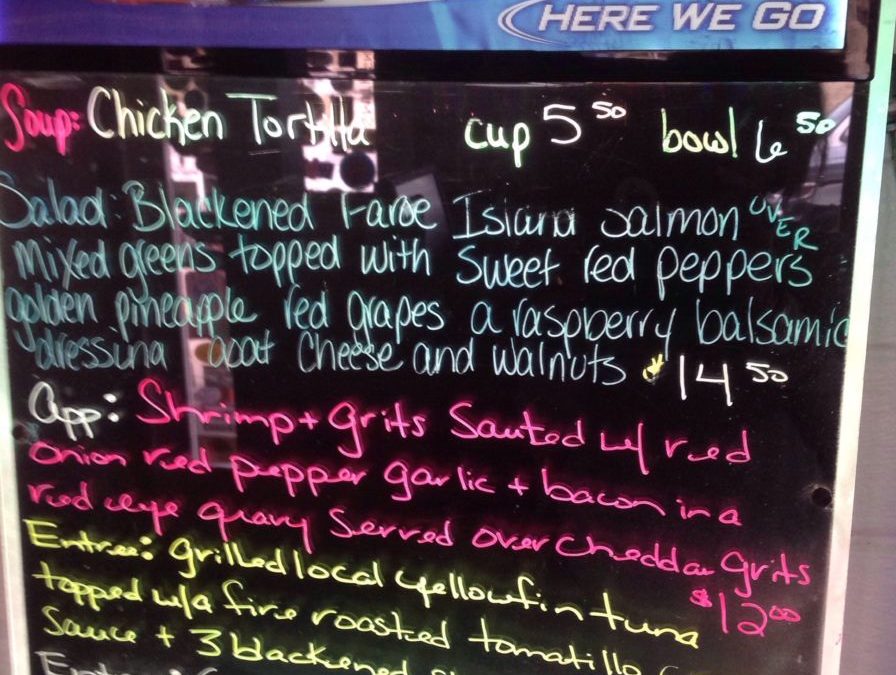 HERE WE GO
Soup: Chicken Tortilla cup 5 50 bowl 6 50
Salad: Blackened Faroe Island Salmon OVER
mixed greens topped with Sweet red peppers
golden pineapple red grapes a raspberry balsamic
dressing goat Cheese and walnuts 14 50
App: Shrimp + grits Sauted w/ red
Onion red pepper garlic + bacon in a
red eye gravy Served over Cheddar Grits
$12 00
Entree: grilled local yellowfin tuna
topped w/a fire roasted tomatillo
Sauce + 3 blackened